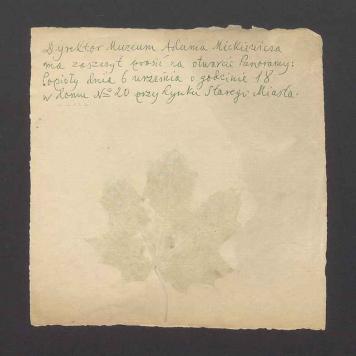 Dyrektor Muzeum Adama Mickiewicza
ma zaszczyt prosić na otwarcie Panoramy:
Popioły dnia 6 września o godzinie 18
w domu No 20 przy Rynku Starego Miasta.